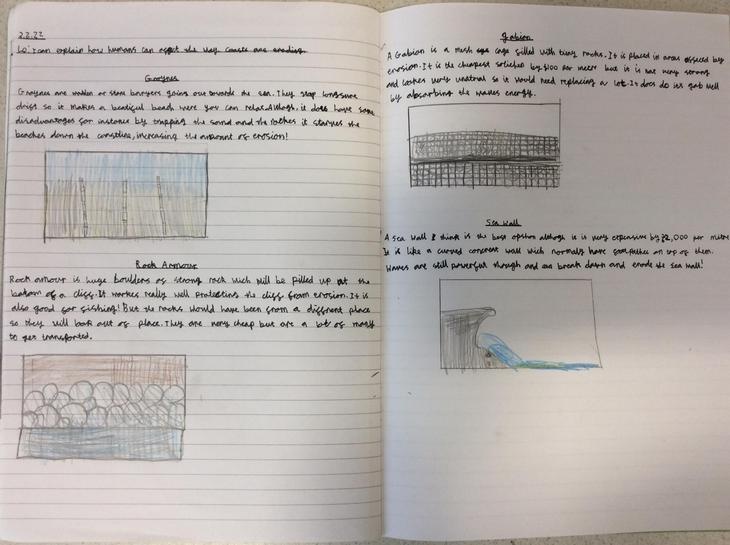 2.2.22
Lo: I can explain how humans can affect the way coasts are eroding.
Groynes
Groynes are wooden or stone barryers going out towards the sea. They stop longshore
drift so it makes a beatiful beach were you can relax. Although, it does have some
disadvantages for instance by trapping the sand and the rockes it starves the
beaches down the coastline, increasing the amount of erosion!
Rock Armour
Rock armour is huge boulders of strong rock wich will be pilled up at the
bottom of a cliff. It workes really well protecting the cliff from erosion. It is
also good for fishing! But the rocks would have been from a different place
so they will look out of place. They are very cheap but are a lot of money
to get transported.
Gabion
A Gabion is a mesh cage filled with tiny rocks. It is placed in areas effected by
erosion. It is the cheapest by £100 per metre but it is not very strong
and lookes very unatral so it would need replacing a lot. It does do its job well
by absorbing the waves energy.
Sea Wall
A Sea Wall I think is the best option although is is very expensive by £2,000 per metre
It is like a curved concrent wall wich normaly have footpathes on top of them.
Waves are still powerful though and can break down and erode the sea wall!